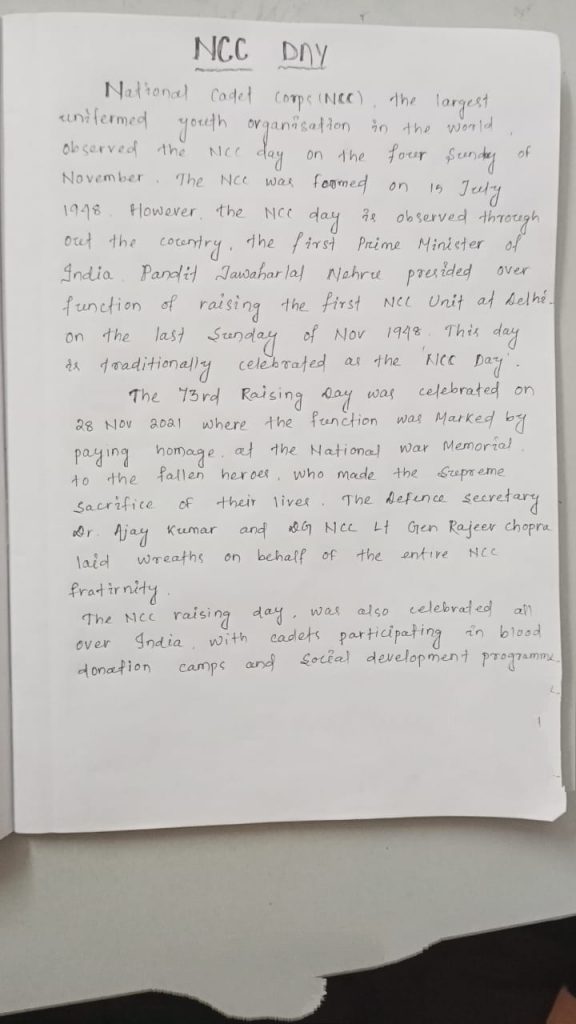 NCC DAY
National Cadet Corps (NCC), the largest
unifermed youth organisation in the world,
observed the NCC day on the four Sunday of
November. The NCC was formed on 15 July
1948. However, the NCC day is observed through
out the country, the first Prime Minister of
India Pandit Jawaharlal Nehru presided over
function of raising the first NCC Unit at Delhi.
on the last Sunday of Nov 1948. This day
is traditionally celebrated as the 'NCC Day'.
The 73rd Raising Day was celebrated on
28 Nov 2021 where the function was Marked by
paying homage, at the National War Memorial
to the fallen heroes, who made the Supreme
Sacrifice of their lives. The Defence Secretary
Dr. Ajay Kumar and DG NCC Lt Gen Rajeev Chopra
laid wreaths on behalf of the entire NCC
fratirnity.
The NCC raising day, was also celebrated all
over India, with cadets participating in blood
donation camps and social development programme.